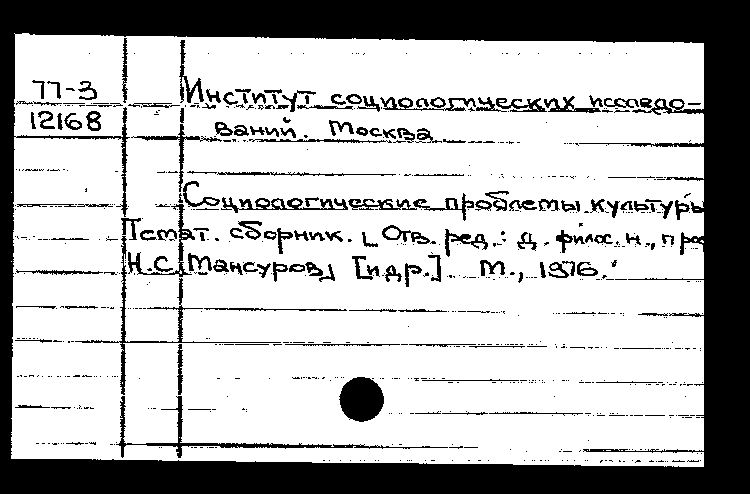 77-3
Институт социологических исследо-
12168
ваний. Москва
Социологические проблемы культуры
Темат. сборник. [Отв. ред.: д. филос. н., проф
Н.С. Мансуров] [и др.]. М., 1976.